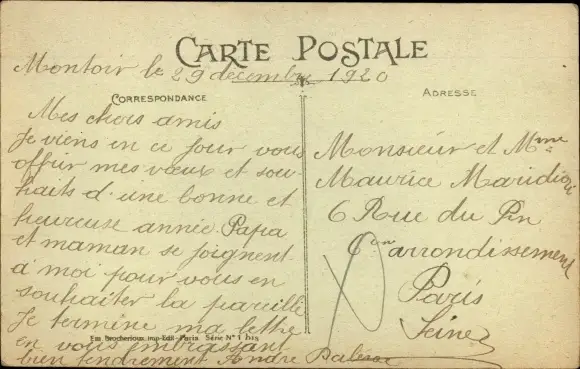 CARTE POSTALE
Montoir le 29 décembre 1920
CORRESPONDANCE
Mes chers amis
Je viens en ce jour vous
offrir mes vœux et sou-
haits d'une bonne et
heureuse année. Papa
et maman se joignent
à moi pour vous en
souhaiter la pareille
Je termine ma lettre
en vous embrassant
bien tendrement André
Em. Brocherioux, imp-Edit-Paris Série N° 1 bis
ADRESSE
Monsieur et Mme
Maurice
6 Rue du
arrondissement
Paris
Seine